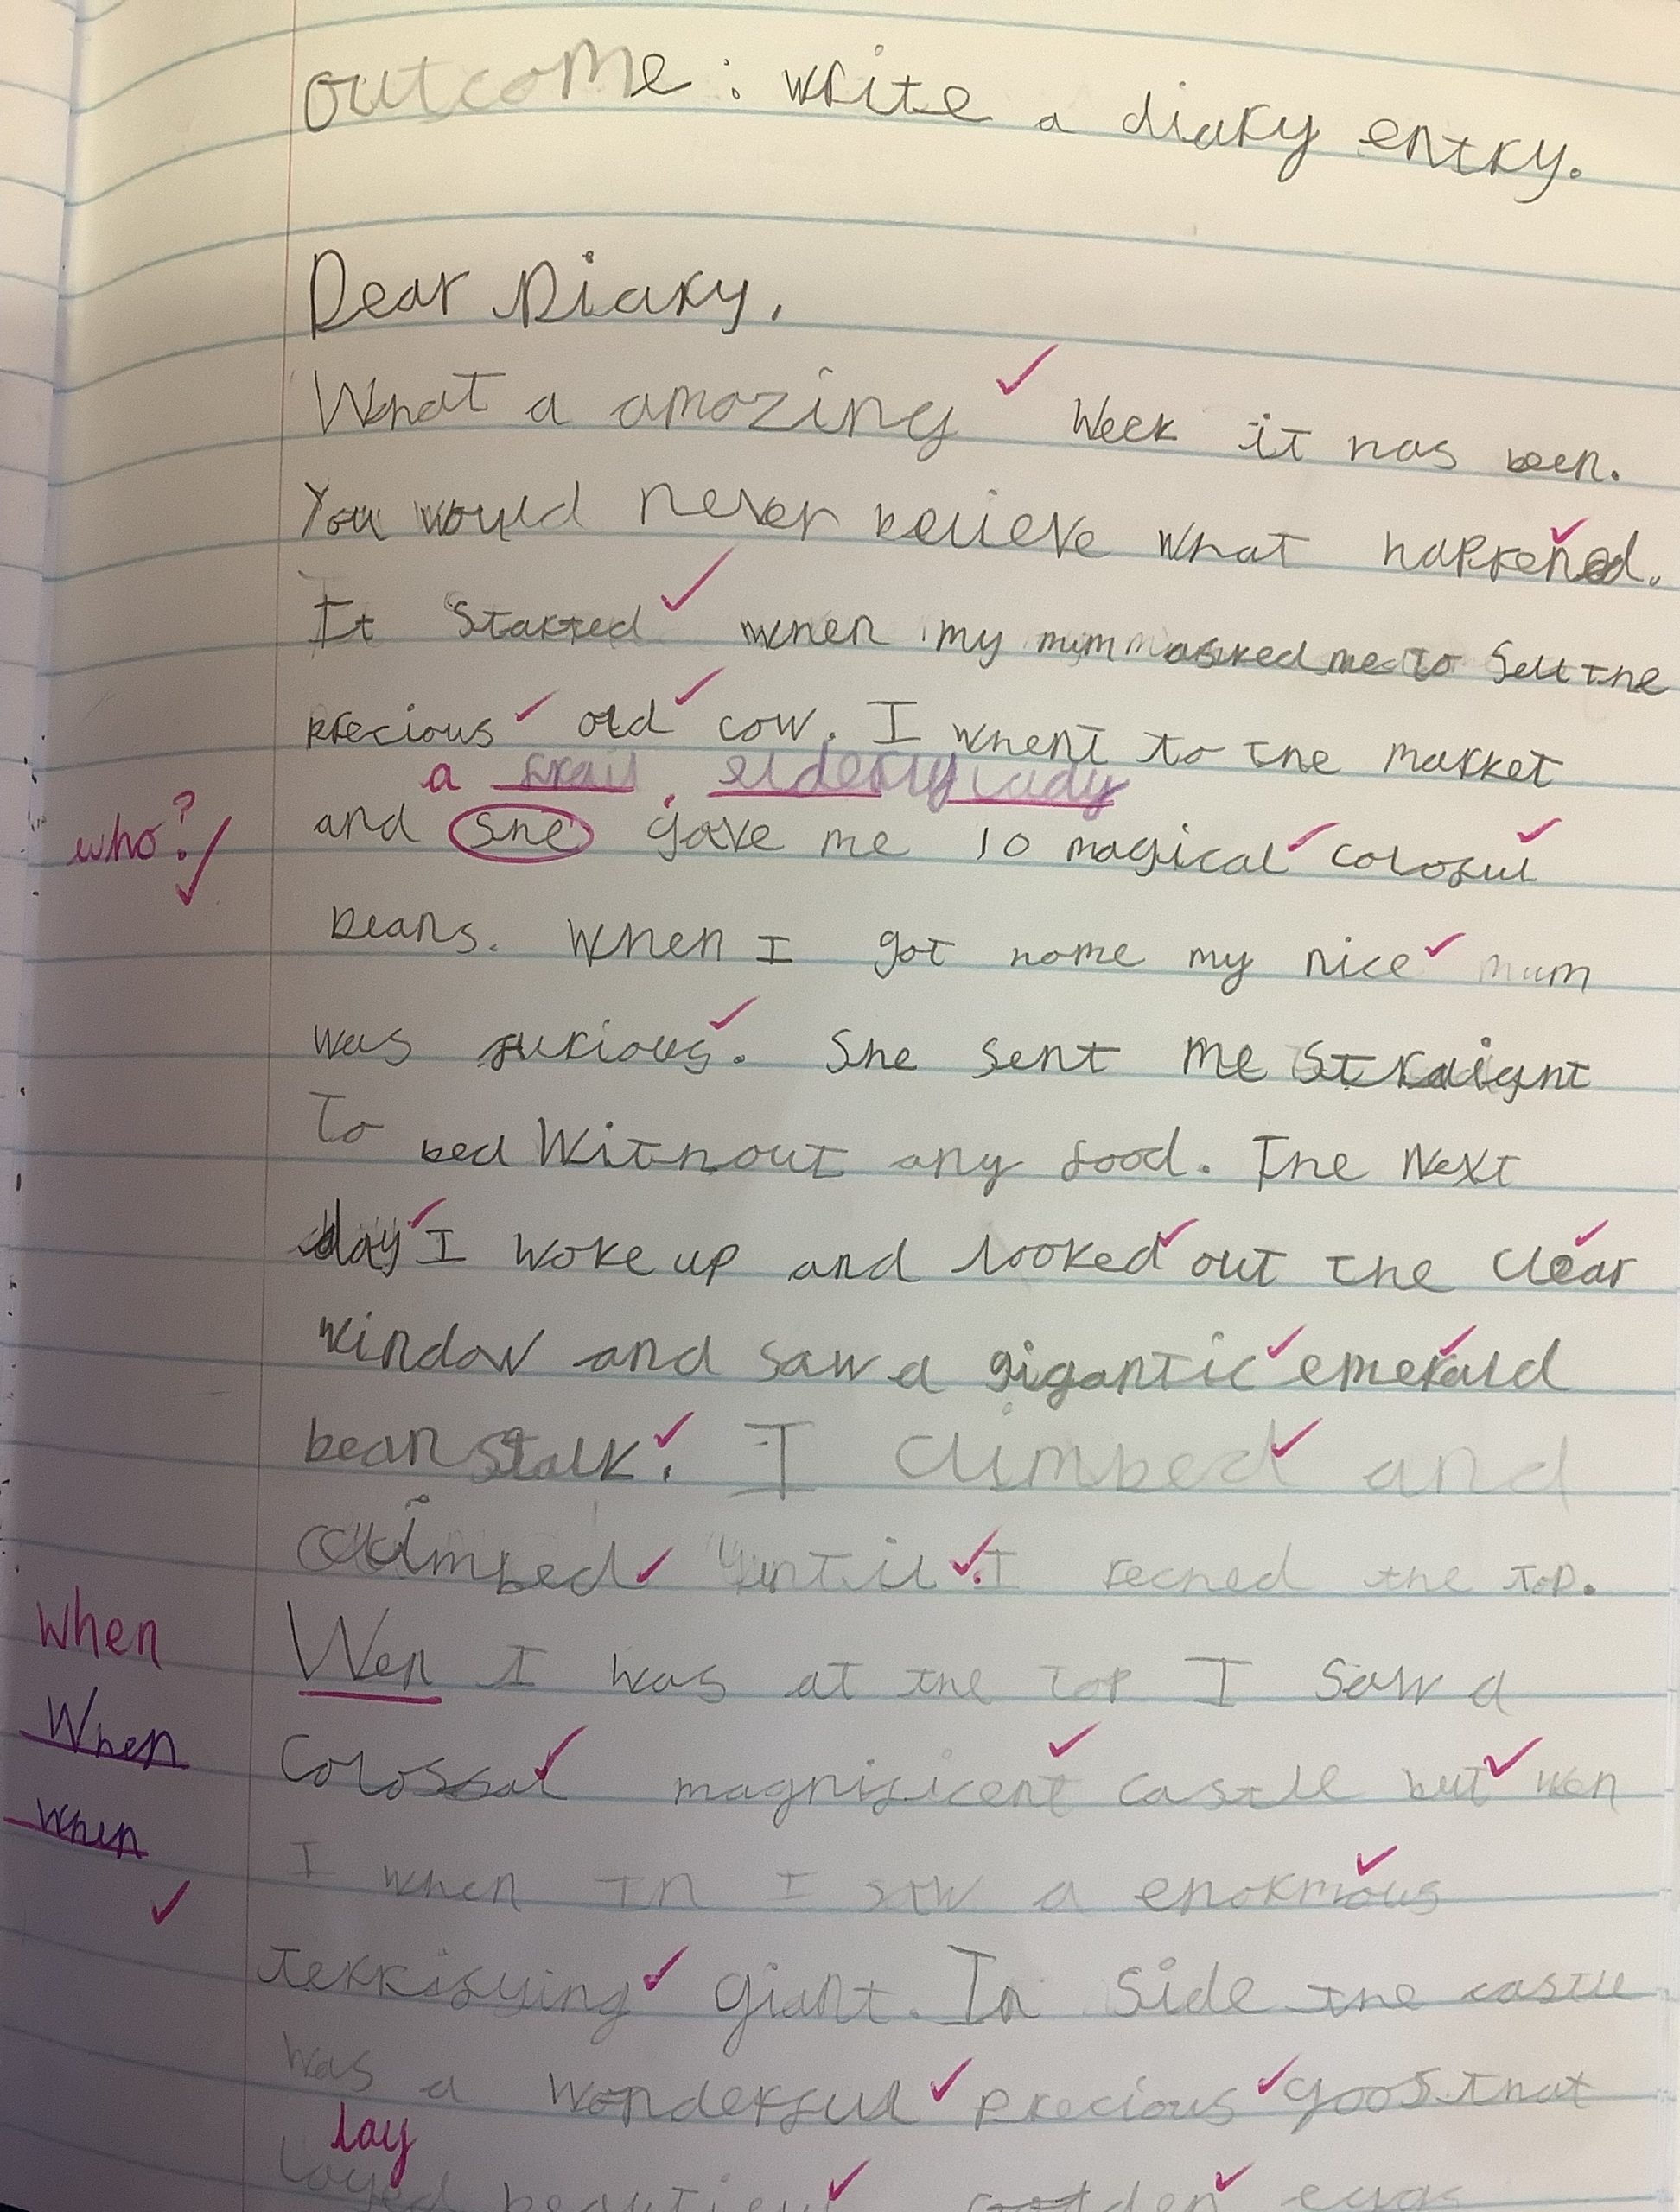 outcome: write a diary entry.
Dear Diary,
What a amazing week it has been.
You would never believe what happened.
It started when my mum asked me to sell the
precious old cow. I whent to the market
a frail, elderly lady
who? and she gave me 10 magical coloful
beans. When I got home my nice mum
was furious. She sent me straight
To bed Without any food. The Next
day I woke up and looked out the clear
window and saw a gigantic emerald
bean stalk. I climbed and
climbed until I reched the top.
When
Wen I was at the top I saw a
When
colossal magnificent castle but wen
when
I when in I saw a enormous
terrifying giant. In side the castle
was a wonderful precious goos that
lay
layed beautiful golden eggs